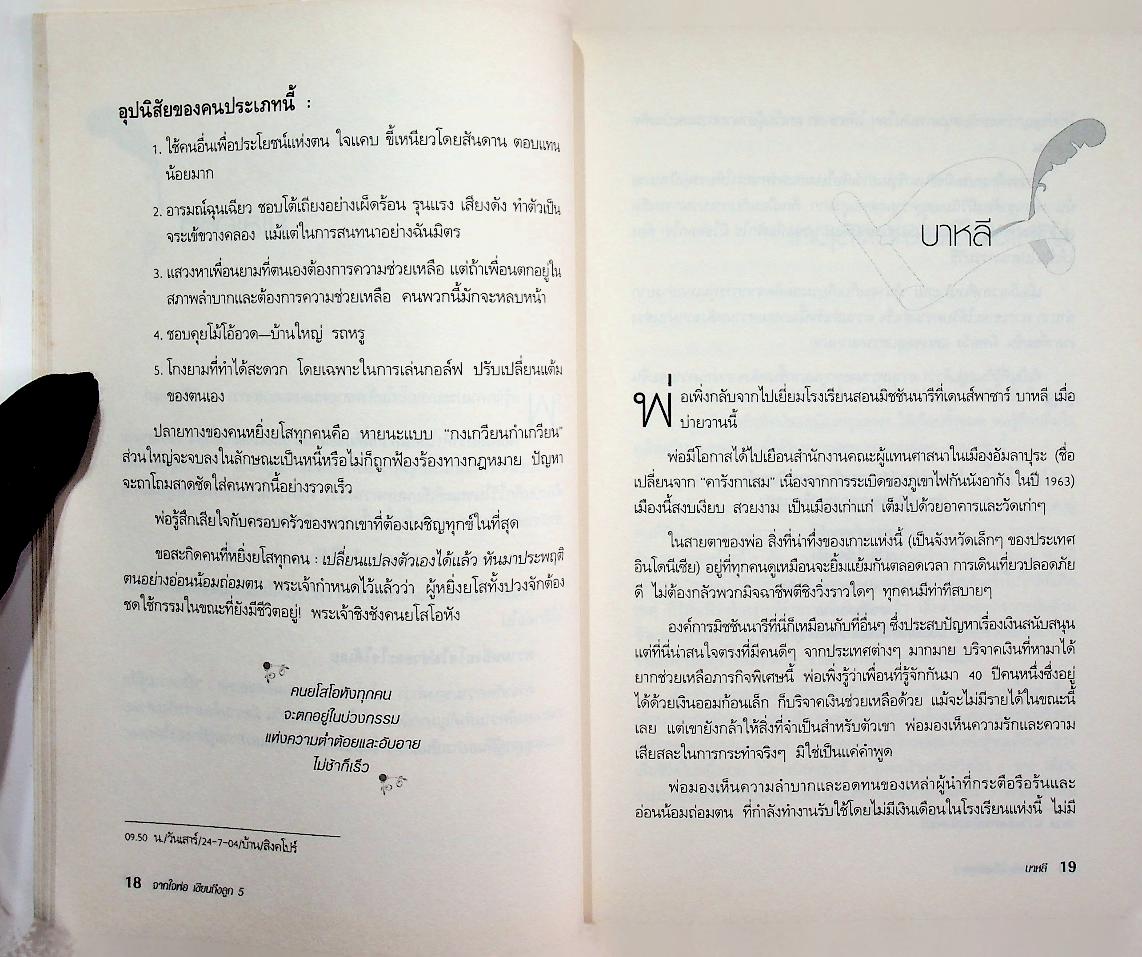 อุปนิสัยของคนประเภทนี้ :
1. ใช้คนอื่นเพื่อประโยชน์แห่งตน ใจแคบ ขี้เหนียวโดยสันดาน ตอบแทน
น้อยมาก
2. อารมณ์ฉุนเฉียว ชอบโต้เถียงอย่างเผ็ดร้อน รุนแรง เสียงดัง ทำตัวเป็น
จระเข้ขวางคลอง แม้แต่ในการสนทนาอย่างฉันมิตร
3. แสวงหาเพื่อนยามที่ตนเองต้องการความช่วยเหลือ แต่ถ้าเพื่อนตกอยู่ใน
สภาพลำบากและต้องการความช่วยเหลือ คนพวกนี้มักจะหลบหน้า
4. ชอบคุยโม้โอ้อวด—บ้านใหญ่ รถหรู
5. โกงยามที่ทำได้สะดวก โดยเฉพาะในการเล่นกอล์ฟ ปรับเปลี่ยนแต้ม
ของตนเอง
ปลายทางของคนหยิ่งยโสทุกคนคือ หายนะแบบ "กงเกวียนกำเกวียน"
ส่วนใหญ่จะจบลงในลักษณะเป็นหนี้หรือไม่ก็ถูกฟ้องร้องทางกฎหมาย ปัญหา
จะถาโถมสาดซัดใส่คนพวกนี้อย่างรวดเร็ว
พ่อรู้สึกเสียใจกับครอบครัวของพวกเขาที่ต้องเผชิญทุกข์ในที่สุด
ขอสะกิดคนที่หยิ่งยโสทุกคน : เปลี่ยนแปลงตัวเองได้แล้ว หันมาประพฤติ
ตนอย่างอ่อนน้อมถ่อมตน พระเจ้ากำหนดไว้แล้วว่า ผู้หยิ่งยโสทั้งปวงจักต้อง
ชดใช้กรรมในขณะที่ยังมีชีวิตอยู่! พระเจ้าชิงชังคนยโสโอหัง
คนยโสโอหังทุกคน
จะตกอยู่ในบ่วงกรรม
แห่งความต่ำต้อยและอับอาย
ไม่ช้าก็เร็ว
09.50 น./วันเสาร์/24-7-04/บ้าน/สิงคโปร์
18 จากใจพ่อ เขียนถึงลูก 5
บาหลี
พ่อเพิ่งกลับจากไปเยี่ยมโรงเรียนสอนมิชชันนารีที่เดนส์พาซาร์ บาหลี เมื่อ
บ่ายวานนี้
พ่อมีโอกาสได้ไปเยือนสำนักงานคณะผู้แทนศาสนาในเมืองอัมลาปุระ (ชื่อ
เปลี่ยนจาก "คารังกาเสม" เนื่องจากการระเบิดของภูเขาไฟกันนังอากัง ในปี 1963)
เมืองนี้สงบเงียบ สวยงาม เป็นเมืองเก่าแก่ เต็มไปด้วยอาคารและวัดเก่าๆ
ในสายตาของพ่อ สิ่งที่น่าทึ่งของเกาะแห่งนี้ (เป็นจังหวัดเล็กๆ ของประเทศ
อินโดนีเซีย) อยู่ที่ทุกคนดูเหมือนจะยิ้มแย้มกันตลอดเวลา การเดินเที่ยวปลอดภัย
ดี ไม่ต้องกลัวพวกมิจฉาชีพตีชิงวิ่งราวใดๆ ทุกคนมีท่าทีสบายๆ
องค์การมิชชันนารีที่นี่ก็เหมือนกับที่อื่นๆ ซึ่งประสบปัญหาเรื่องเงินสนับสนุน
แต่ที่นี่น่าสนใจตรงที่มีคนดีๆ จากประเทศต่างๆ มากมาย บริจาคเงินที่หามาได้
ยากช่วยเหลือภารกิจพิเศษนี้ พ่อเพิ่งรู้ว่าเพื่อนที่รู้จักกันมา 40 ปีคนหนึ่งซึ่งอยู่
ได้ด้วยเงินออมก้อนเล็ก ก็บริจาคเงินช่วยเหลือด้วย แม้จะไม่มีรายได้ในขณะนี้
เลย แต่เขายังกล้าให้สิ่งที่จำเป็นสำหรับตัวเขา พ่อมองเห็นความรักและความ
เสียสละในการกระทำจริงๆ มิใช่เป็นแค่คำพูด
พ่อมองเห็นความลำบากและอดทนของเหล่าผู้นำที่กระตือรือร้นและ
อ่อนน้อมถ่อมตน ที่กำลังทำงานรับใช้โดยไม่มีเงินเดือนในโรงเรียนแห่งนี้ ไม่มี
บาหลี 19